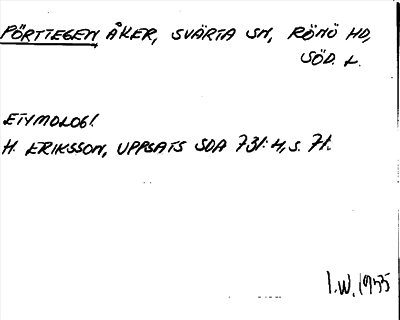 PÖRTTEGEN ÅKER, SVÄRTA SN, RÖNÖ HD,
SÖD. L.
ETYMOLOGI
H. ERIKSSON, UPPSATS SOA 731:4, S. 71.
I.W. 1935